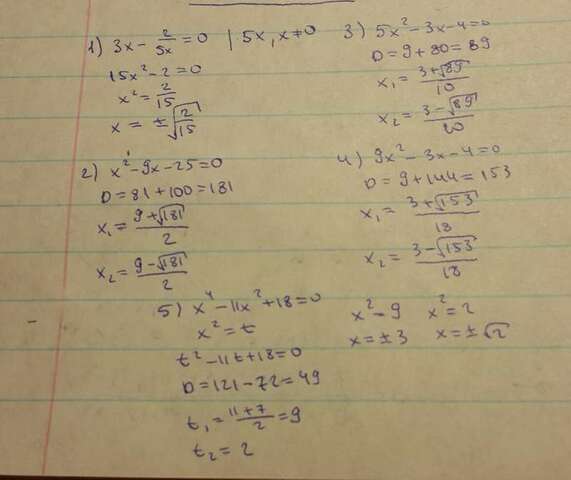 1) 3x - 2/5x = 0 | 5x, x≠0
15x² - 2 = 0
x² = 2/15
x = ±√(2/15)
2) x² - 9x - 25 = 0
D = 81 + 100 = 181
x₁ = (9+√181)/2
x₂ = (9-√181)/2
3) 5x² - 3x - 4 = 0
D = 9 + 80 = 89
x₁ = (3+√89)/10
x₂ = (3-√89)/20
4) 9x² - 3x - 4 = 0
D = 9 + 144 = 153
x₁ = (3+√153)/18
x₂ = (3-√153)/18
5) x⁴ - 11x² + 18 = 0
x² = t
t² - 11t + 18 = 0
D = 121 - 72 = 49
t₁ = (11+7)/2 = 9
t₂ = 2
x² - 9 x² = 2
x = ±3 x = ±√2